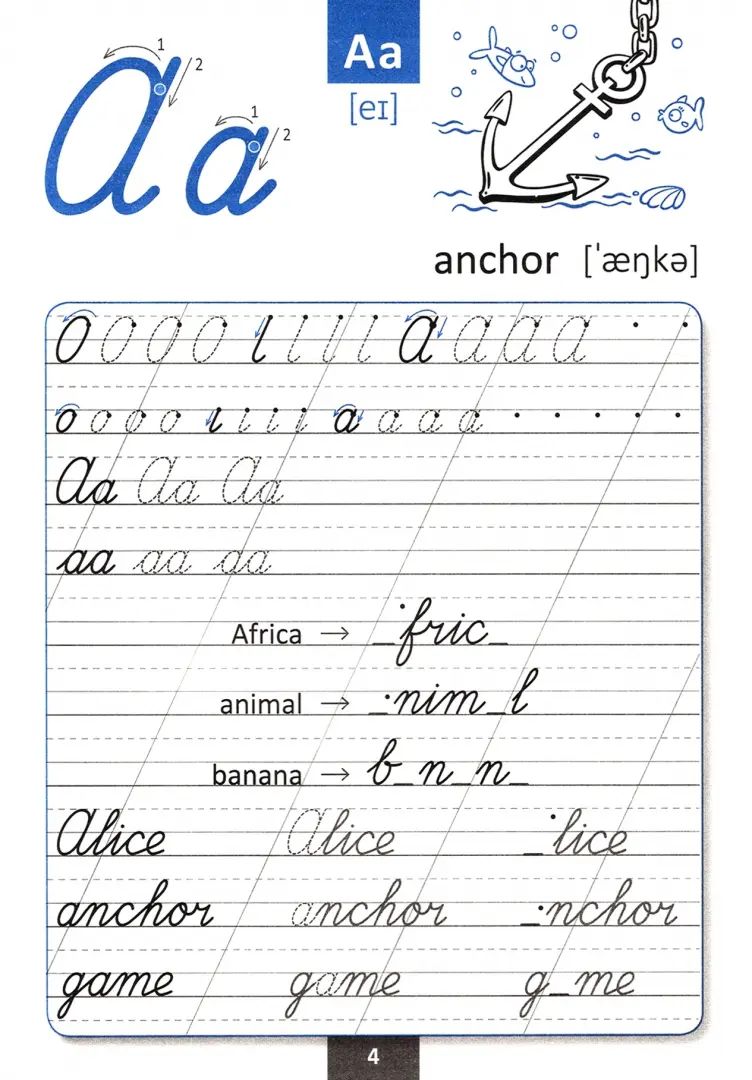 1
2
1
2
Aa
[eɪ]
anchor [ˈæŋkə]
O O O O l l l l A A A A
o o o o ı ı ı ı a a a a
Aa Aa Aa
aa aa aa
Africa → _fric_
animal → _nim_l
banana → b_n_n_
Alice Alice _lice
anchor anchor _nchor
game game g_me
4